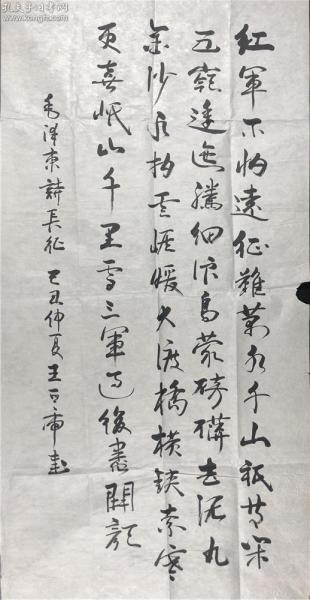 孔夫子旧书网
www.kongfz.com
紅軍不怕遠征難萬水千山祇等閑
五嶺逶迤騰細浪烏蒙磅礴走泥丸
金沙水拍雲崖暖大渡橋橫鐵索寒
更喜岷山千里雪三軍過後盡開顏
毛澤東詩長征 己丑仲夏王書